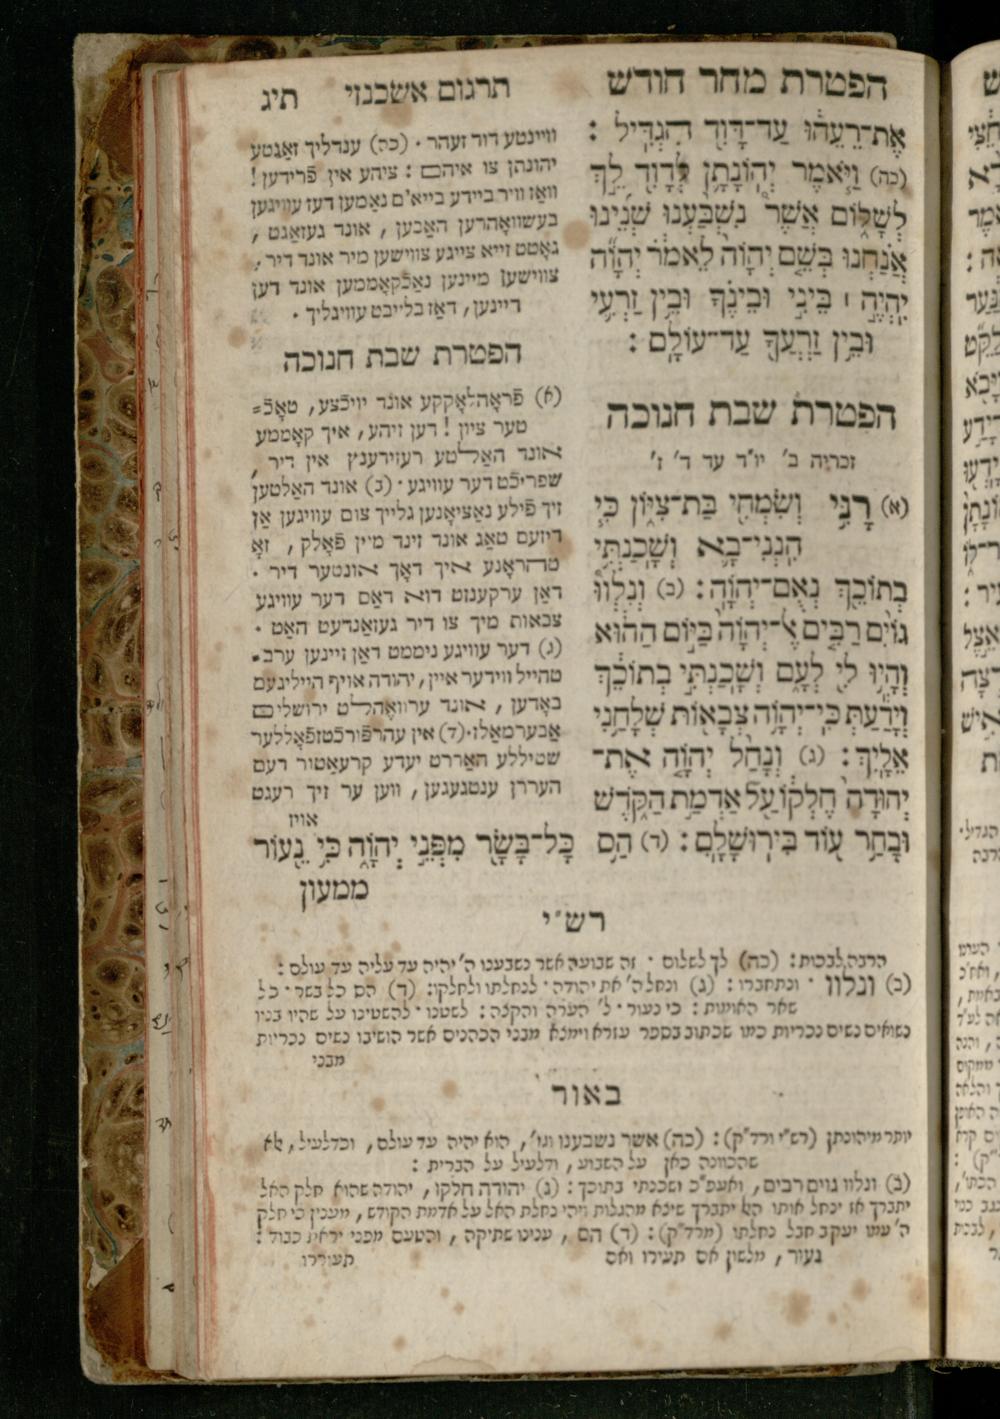 הפטרת מחר חודש
תרגום אשכנזי
תיג
אֶת־רֵעֵהוּ עַד־דָּוִד הִגְדִּיל :
(כה) וַיֹּאמֶר יְהוֹנָתָן לְדָוִד לֵךְ
לְשָׁלוֹם אֲשֶׁר נִשְׁבַּעְנוּ שְׁנֵינוּ
אֲנַחְנוּ בְּשֵׁם יְהוָֹה לֵאמֹר יְהוָֹה
יִהְיֶה ׀ בֵּינִי וּבֵינֶךָ וּבֵין זַרְעִי
וּבֵין זַרְעֲךָ עַד־עוֹלָם :
הפטרת שבת חנוכה
זכריה ב' יו"ד עד ד' ז'
(א) רָנִּי וְשִׂמְחִי בַּת־צִיּוֹן כִּי
הִנְנִי־בָא וְשָׁכַנְתִּי
בְתוֹכֵךְ נְאֻם־יְהוָֹה : (ב) וְנִלְווּ
גוֹיִם רַבִּים אֶל־יְהוָֹה בַּיּוֹם הַהוּא
וְהָיוּ לִי לְעָם וְשָׁכַנְתִּי בְתוֹכֵךְ
וְיָדַעַתְּ כִּי־יְהוָֹה צְבָאוֹת שְׁלָחַנִי
אֵלָיִךְ : (ג) וְנָחַל יְהוָֹה אֶת־
יְהוּדָה חֶלְקוֹ עַל אַדְמַת הַקֹּדֶשׁ
וּבָחַר עוֹד בִּירוּשָׁלִָם : (ד) הַס כָּל־בָּשָׂר מִפְּנֵי יְהוָֹה כִּי נֵעוֹר
ממעון
וויינטע דוד זעהר . (כה) ענדליך זאגטע
יהונתן צו איהם : ציהע אין פֿרידען !
וואז וויר ביידע בייא'ם נאמען דעז עוויגען
בעשוואהרען האבען , אונד געזאגט ,
גאטט זייא צייגע צווישען מיר אונד דיר ,
צווישען מיינען נאכֿקאממען אונד דען
דיינען , דאז בלייבט עוויגליך .
הפטרת שבת חנוכה
(א) פֿראהלאקקע אונד יויכֿצע , טאכֿ=
טער ציון ! דען זיהע , איך קאממע
אונד האלטע רעזידענץ אין דיר ,
שפריכֿט דער עוויגע . (ב) אונד האלטען
זיך פֿילע נאציאנען גלייך צום עוויגען אן
דיזעם טאג אונד זינד מיין פֿאלק , זא
טהראנע איך דאך אונטער דיר .
דאן ערקענזט דוא דאס דער עוויגע
צבאות מיך צו דיר געזאנדעט האט .
(ג) דער עוויגע נימט דאן זיינען ערב=
טהייל ווידער איין , יהודה אויף הייליגעם
באדען , אונד ערוואהלט ירושלים
אבערמאלז . (ד) אין עהרפֿורכֿטזפֿאללער
שטיללע הארט יעדע קרעאטור דעם
הערן ענטגעגען , ווען ער זיך רעגט
אויז
רש"י
הרבה לבכות : (כה) לך לשלום . זה שבועה אשר נשבענו ה' יהיה עד עליה עד עולם :
(ב) ונלוו . ונתחברו : (ג) ונחל ה' את יהודה . לנחלתו ולחלקו : (ד) הס כל בשר . כל
שאר האומות : כי נעור . ל' הערה והקלה : לשטנו . להשטינו על שהיו בניו
נשואים נשים נכריות כמו שכתוב בספר עזרא וימצא מבני הכהנים אשר הושיבו נשים נכריות
מבני
באור
יותר מיהונתן (רש"י ורד"ק) : (כה) אשר נשבענו וגו' , הוא יהיה עד עולם , וכדלעיל , אלא
שהכוונה כאן על השבוע , ודלעיל על הברית :
(ב) ונלוו גוים רבים , ואעפ"כ ושכנתי בתוכך : (ג) יהודה חלקו , יהודה שהוא חלק האל
יתברך אז ינחל אותו האל יתברך שיצא מהגלות ויהי נחלת האל על אדמת הקודש , מענין כי חלק
ה' עמו יעקב חבל נחלתו (מרד"ק) : (ד) הס , ענינו שתיקה , והטעם מפני יראת כבוד :
נעור , מלשון אם תעירו ואם
תעוררו